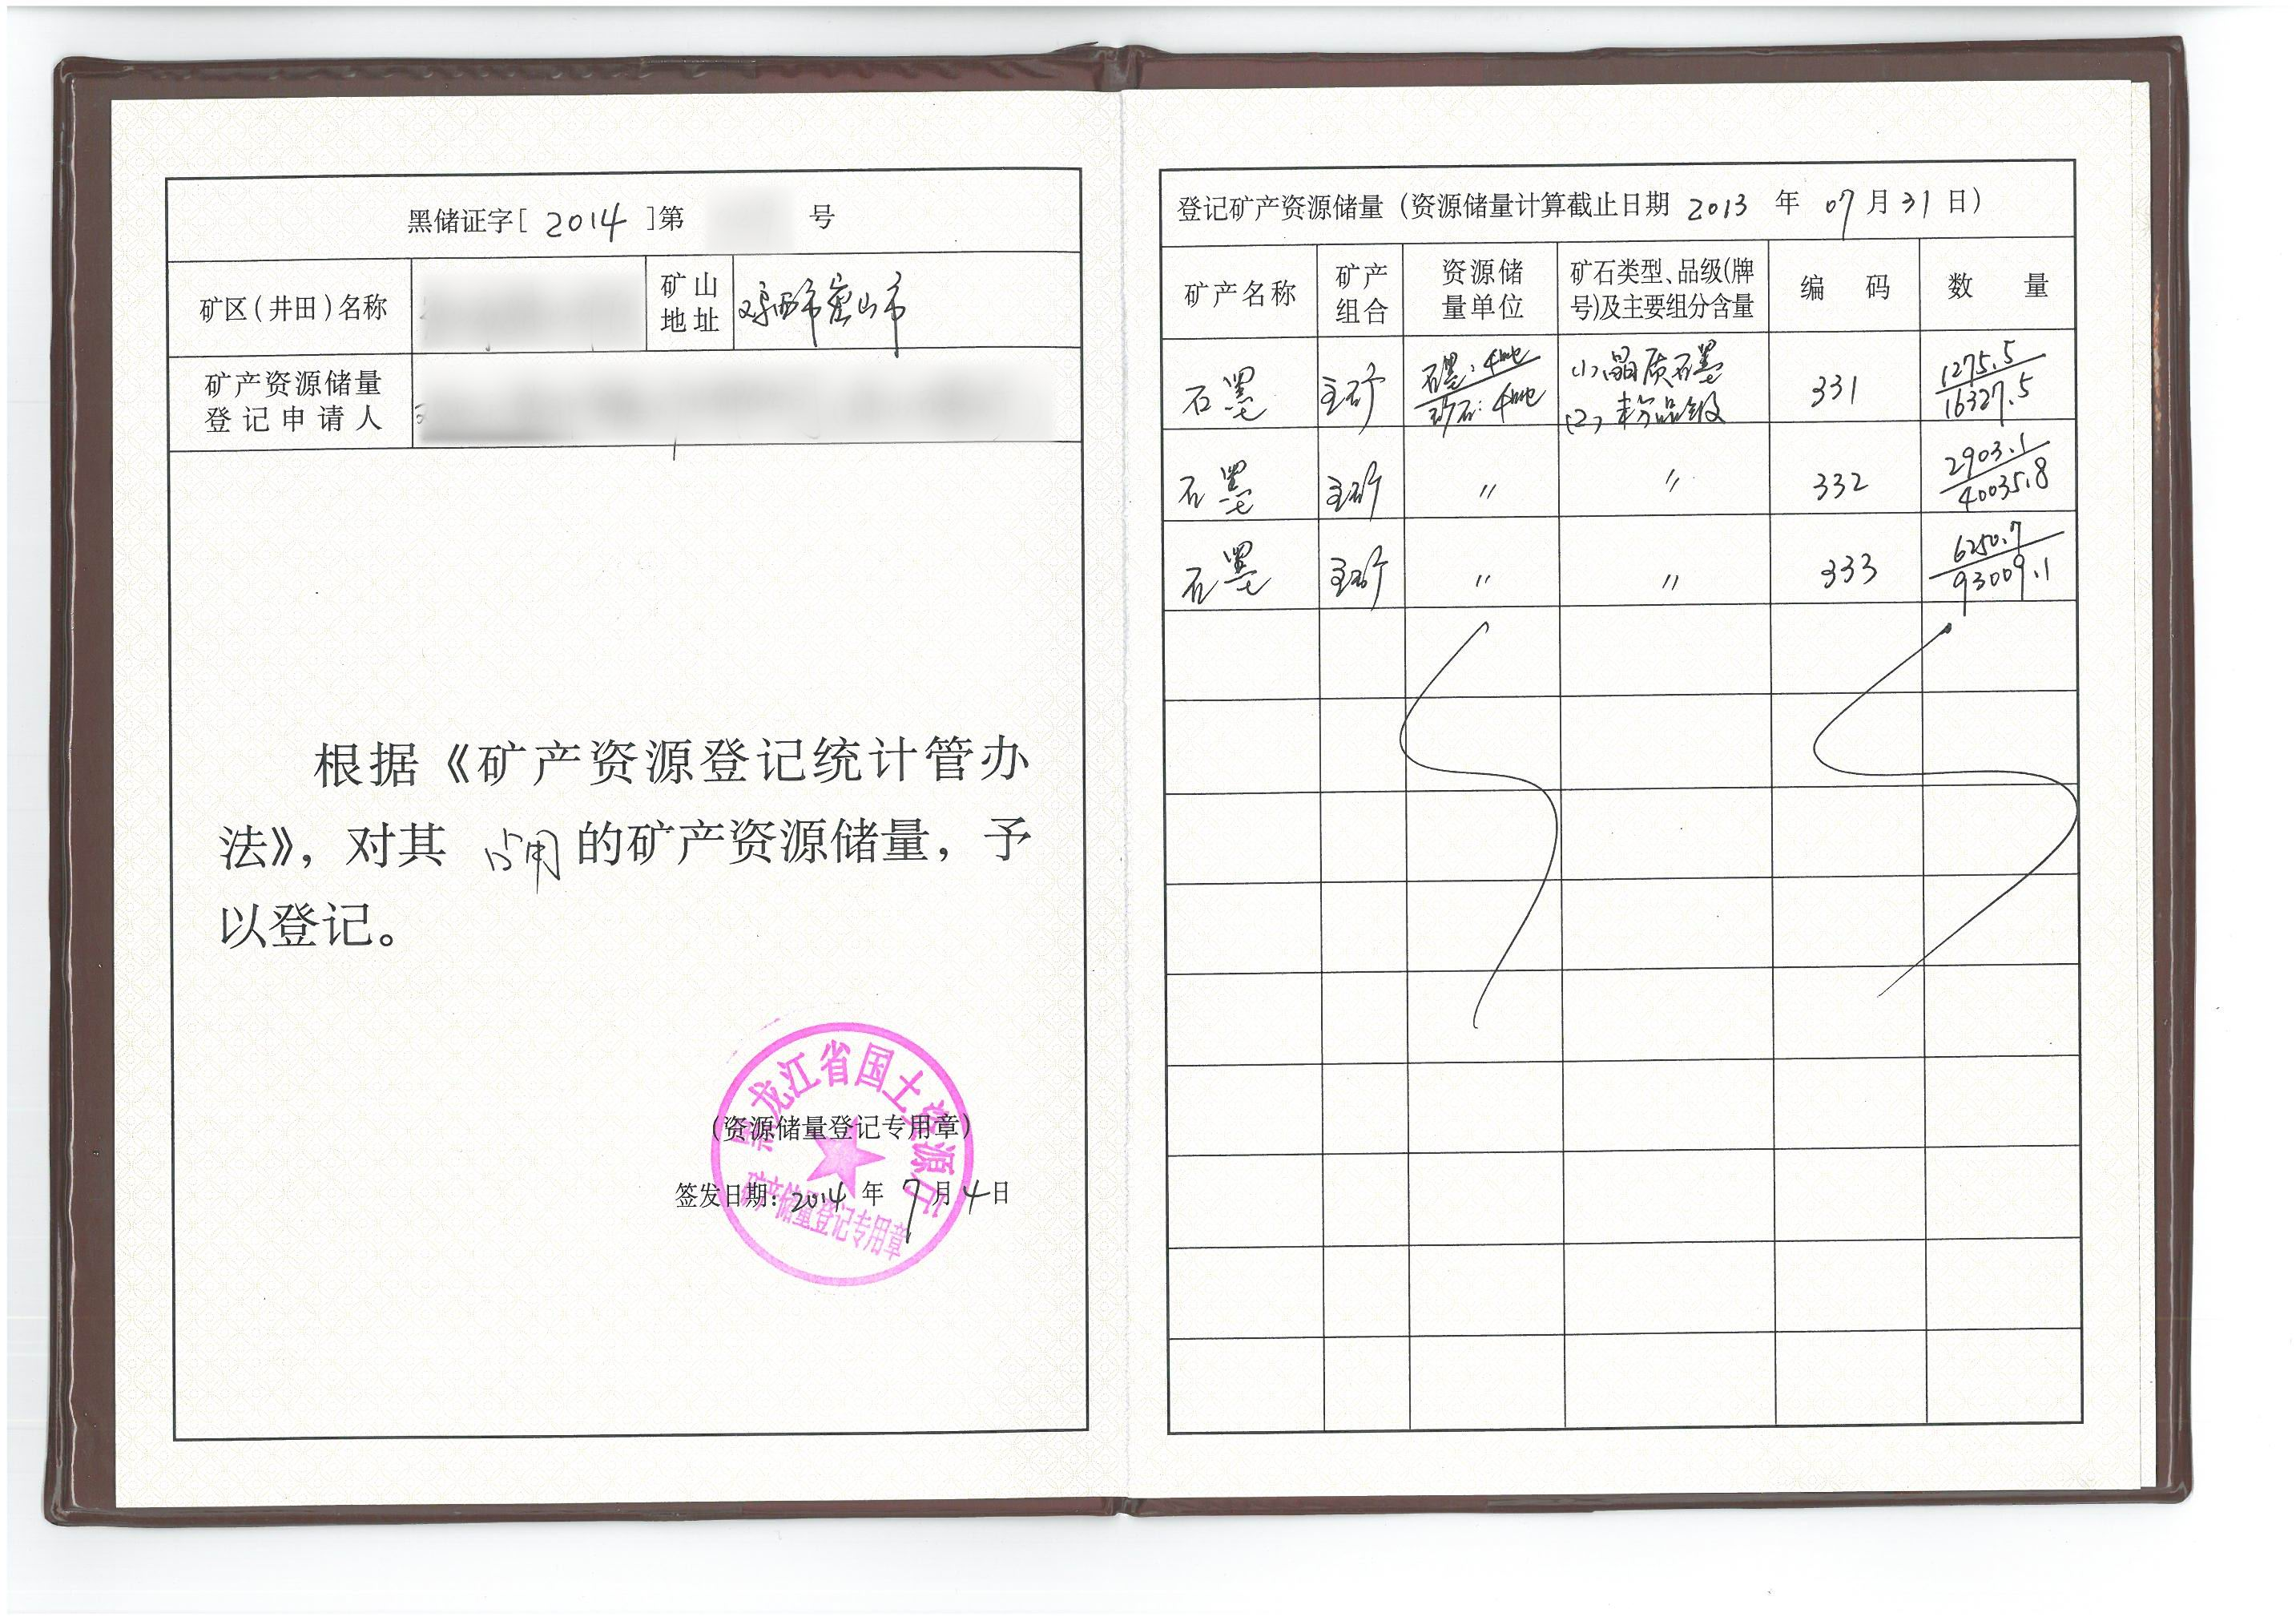 黑储证字[ 2014 ]第 号
矿区(井田)名称
矿山地址 鸡西市密山市
矿产资源储量
登记申请人
根据《矿产资源登记统计管办
法》，对其 占用 的矿产资源储量，予
以登记。
黑龙江省国土资源厅
(资源储量登记专用章)
签发日期：2014 年 7 月 4 日
矿产储量登记专用章
登记矿产资源储量(资源储量计算截止日期 2013 年 07 月 31 日)
矿产名称 矿产组合 资源储量单位 矿石类型、品级(牌号)及主要组分含量 编 码 数 量
石墨 主矿 石墨: / 矿石: (1)晶质石墨 (2)未分品级 331 1275.5/16327.5
石墨 主矿 〃 〃 332 2903.1/40035.8
石墨 主矿 〃 〃 333 6250.7/93009.1